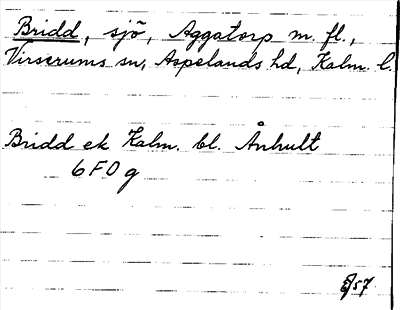 Bridd, sjö, Aggatorp m. fl.,
Virserums sn, Aspelands hd, Kalm. l.
Bridd ek Kalm. bl. Ånhult
6F0g
/57